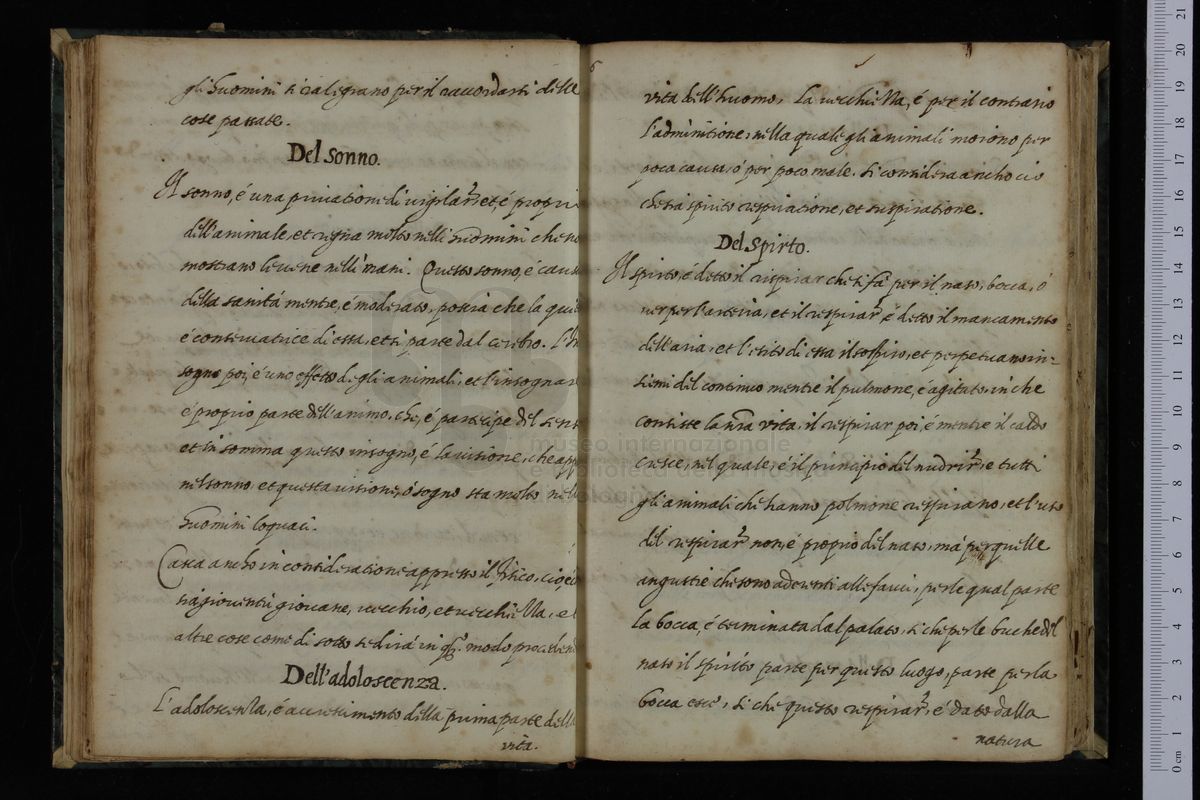 gli huomini si ralegrano per il raccordarsi delle
cose passate.
Del Sonno.
Il sonno, é una privatione di vigilare, et, é propri
dell'animale, et regna molto nelli huomini che no
mostrano le vene nelli mani. Questo sonno, é caus
della sanitá mentre, é moderato, poscia che la qui
é conservatrice di essa, et si parte dal cerebro. L'In
sogno poi, é uno effetto degli animali, et l'insognar
é proprio parte dell'animo, che, é partecipe del sens
et in somma questo insogno, é la visione, che app
nel sonno, et questa visione, ó sogno sta molto nell
huomini loquaci.
Casca ancho in consideratione appresso il fisico, cioé
gioventú giovane, vecchio, et vecchiezza, e l
altre cose come di sotto se dirá in modo procedend
Dell'adoloscenza.
L'adoloscenza, é accrescimento della prima parte della
vita.
6
vita dell'huomo, La vecchiezza, é per il contrario
l'adminitione, nella quale gli animali morono per
poca causa, ó per poco male. Si considera ancho ció
che sia spirito respiracione, et suspiratione.
Del Spirto.
Il spirto, é detto il respirar che si fá per il naso, bocca, ó
ver per l'arteria, et il respirare, é detto il mancamento
dell'aria, et l'esito di essa il sospiro, et perpetuano in=
siemi del continuo mentre il pulmone, é agitato, in che
consiste la nra vita, il respirar poi, é mentre il caldo
cresce, nel quale, é il principio del nudrire, e tutti
gli animali che hanno polmone respirano, et l'uso
del respirare non, é proprio del naso, má per quelle
angustie che sono aderenti alle fauci, per le qual parte
la bocca, é terminata dal palato, si che per le buche del
naso il spirito parte per questo luogo, parte per la
bocca esce, si che questo respirare, é dato dalla
natura
museo internazionale
e biblioteca della musica
di bologna